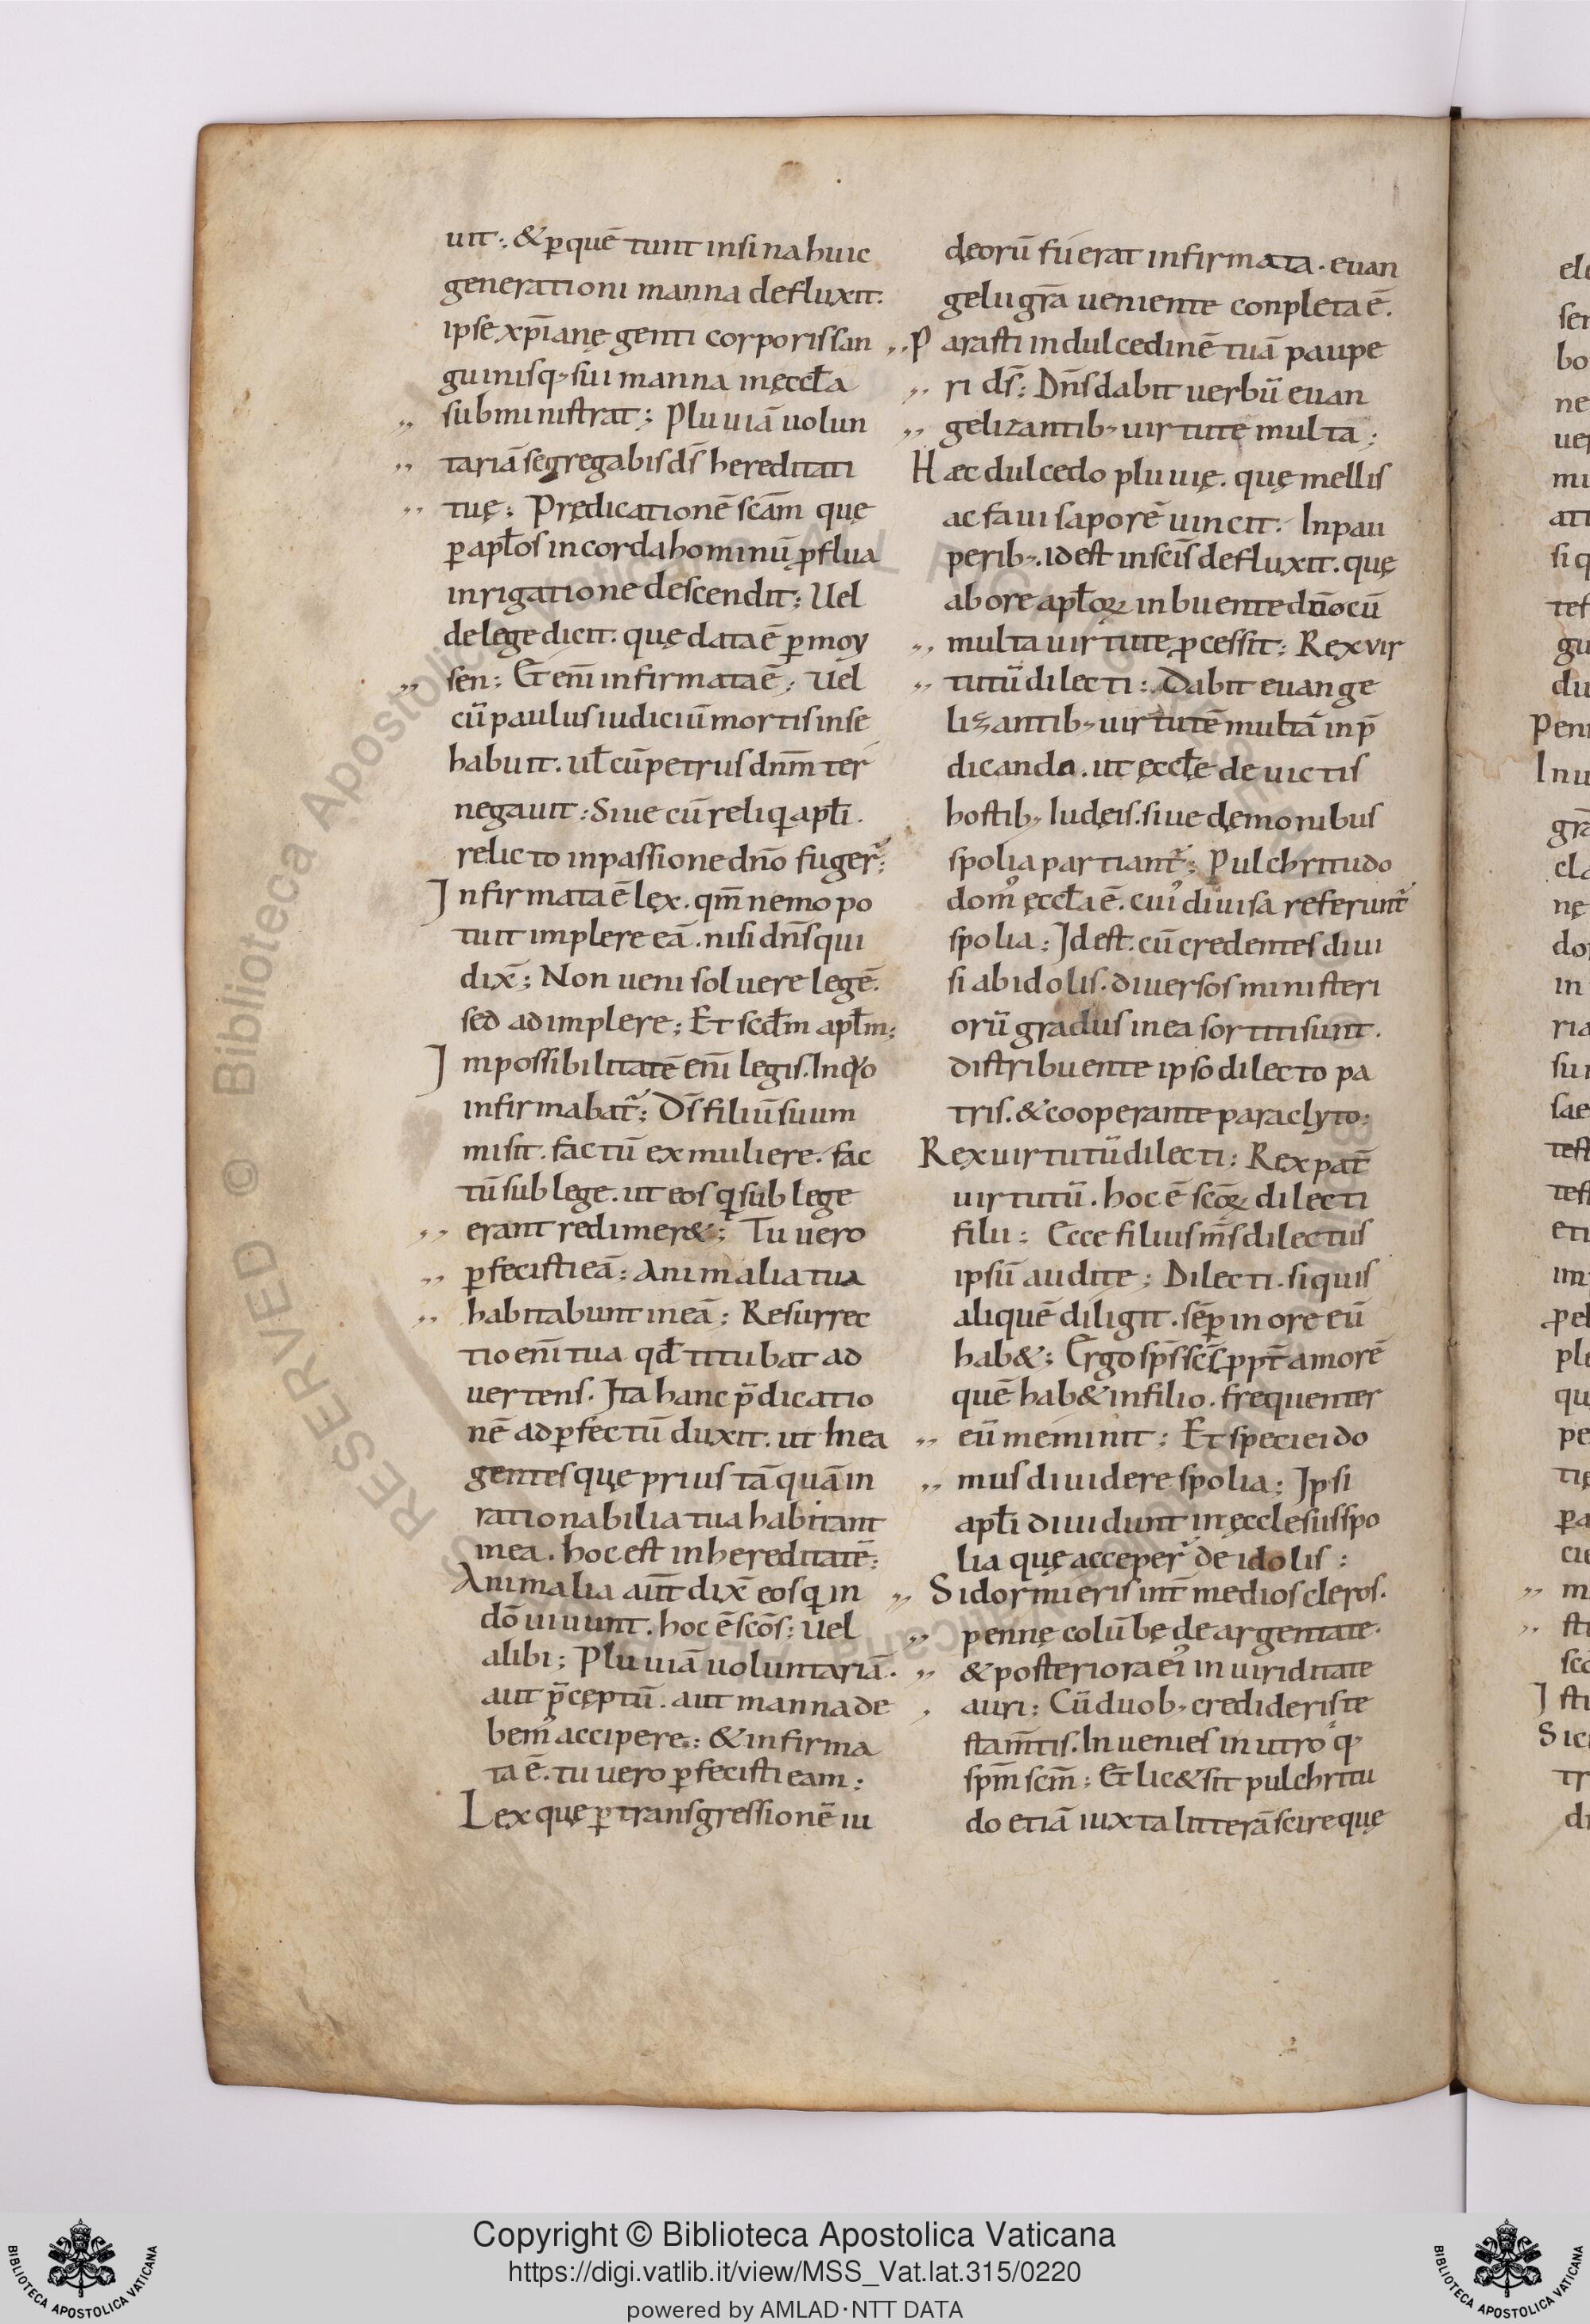 uit:, & ꝑ quē tunt insina huic
generationi manna defluxit.
ipse xp̄ianę genti corporis san
guinisq; sui manna in ęccła
subministrat; Pluuiā uolun
tariā segregabis ds̄ hereditati
tuę; Prędicationē scām quę
ꝑ apłos in corda hominū ꝓflua
inrigatione descendit; Uel
de lege dicit. quę data ē ꝑ moy
sen; Et enī infirmata ē; Uel
cū paulus iudiciū mortis in se
habuit. uł cū petrus dnm̄ ter
negauit; Siue cū reliq apłi.
relicto in passione dn̄o fuger̄;
Infirmata ē lex. qm̄ nemo po
tuit implere eā. nisi dn̄s qui
dix̄; Non ueni soluere legē.
sed adimplere; Et scdm̄ apłm;
Impossibilitatē enī legis. In quo
infirmabat̄; Ds̄ filiū suum
misit. factū ex muliere. fac
tū sub lege. ut eos q sub lege
erant redimer&; Tu uero
ꝑfecisti eā; Animalia tua
habitabunt in eā; Resurrec
tio enī tua qđ titubat ad
uertens. Ita hanc p̄dicatio
nē ad ꝑfectū duxit. ut In ea
gentes quę prius tā quā in
rationabilia tua habitant
in ea. hoc est in hereditatē;
Animalia aut̄ dix̄ eos q in
dō uiuunt. hoc ē scōs; Uel
alibi; Pluuiā uoluntariā.
aut p̄ceptū. aut manna de
bem᾽ accipere; & infirma
ta ē. tu uero ꝑfecisti eam;
Lex quę ꝑ transgressionē iu
dęorū fuerat infirmata. euan
gelii gr̄a ueniente conpleta ē.
Parasti in dulcedinē tuā paupe
ri ds̄; Dn̄s dabit uerbū euan
gelizantib; uirtute multa;
Hæc dulcedo pluuię. quę mellis
ac faui saporē uincit. In pau
perib;. id est in scīs defluxit. quę
ab ore apłoꝝ inbuente dn̄o cū
multa uirtute ꝓcessit; Rex vir
tutū dilecti; Dabit euange
lizantib; uirtutē multā in p̄
dicanda. ut ęccłę deuictis
hostib; Iudęis. siue dęmonibus
spolia partiant̄; Pulchritudo
dom᾽ ęccła ē. cui᾽ diuisa referunt̄
spolia; Id est. cū credentes diui
si ab idolis. diuersos ministeri
orū gradus in ea sortiti sunt.
distribuente ipso dilecto pa
tris. & cooperante paraclyto;
Rex uirtutū dilecti; Rex pat̄
uirtutū. hoc ē scōꝝ dilecti
filii; Ecce filius ms̄ dilectus
ipsū audite; Dilecti. si quis
aliquē diligit. sēꝑ in ore eū
hab&; Ergo sps̄ scs̄ ꝓpt̄ amorē
quē hab& in filio. frequenter
eū meminit; Et speciei do
mus diuidere spolia; Ipsi
apłi diuidunt in ęcclesiis spo
lia quę acceper̄ de idolis;
Si dormieris int̄ medios cleros.
pennę colūbę deargentatę.
& posteriora ei᾽ in uiriditate
auri; Cū duob; credideris te
stam̄tis. Inuenies in utroq;
spm̄ scm̄; Et lic& sit pulchritu
do etiā iuxta litterā scire quę